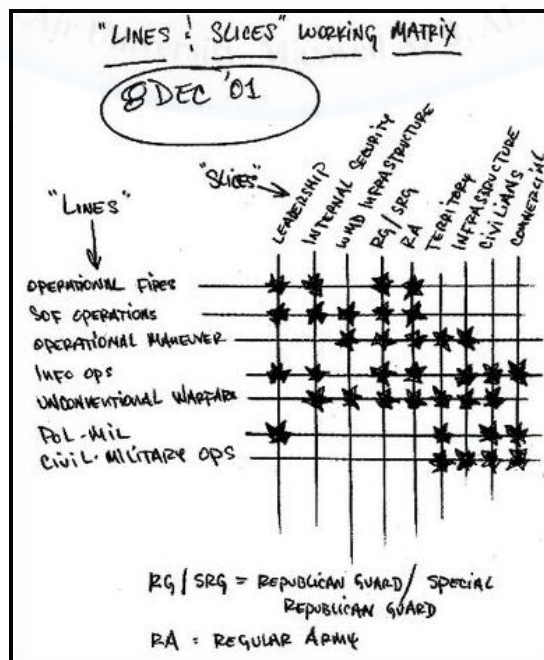 Air University, Maxwell AFB, AL
"LINES & SLICES" WORKING MATRIX
8 DEC '01
"SLICES"
LEADERSHIP
INTERNAL SECURITY
WMD INFRASTRUCTURE
RG/SRG
RA
TERRITORY
INFRASSTRUCTURE
CIVILIANS
COMMERCIAL
"LINES"
OPERATIONAL FIRES
SOF OPERATIONS
OPERATIONAL MANEUVER
INFO OPS
UNCONVENTIONAL WARFARE
POL-MIL
CIVIL-MILITARY OPS
RG/SRG = REPUBLICAN GUARD/SPECIAL
REPUBLICAN GUARD
RA = REGULAR ARMY